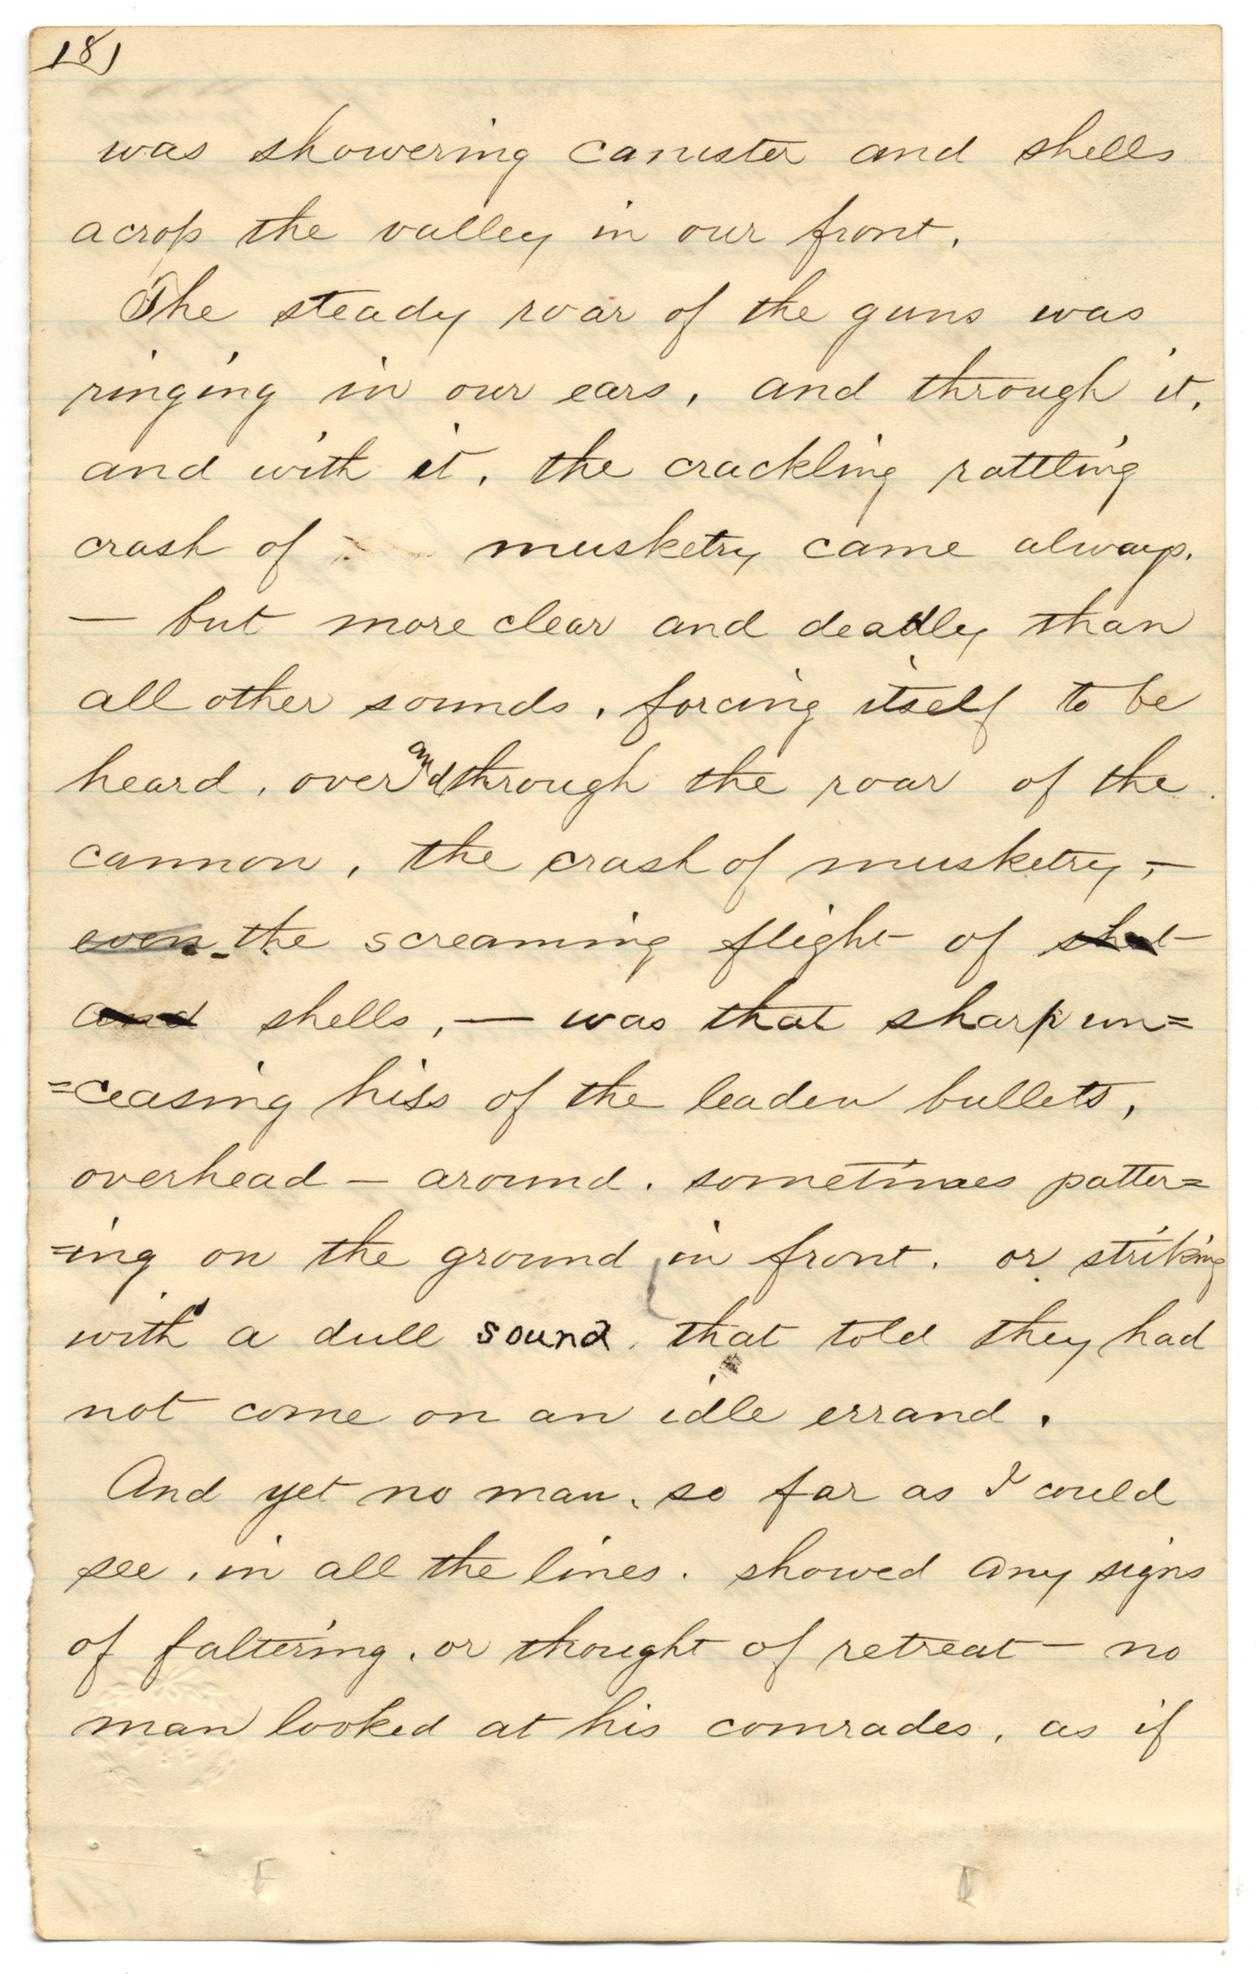 181
was showering canister and shells
across the valley in our front.
The steady roar of the guns was
ringing in our ears, and through it,
and with it, the crackling rattling
crash of musketry came always.
— but more clear and deadly than
all other sounds, forcing itself to be
heard, over and through the roar of the
cannon, the crash of musketry, —
even the screaming flight of shot
and shells, — was that sharp un=
=ceasing hiss of the leaden bullets,
overhead — around, sometimes patter=
=ing on the ground in front, or striking
with a dull sound, that told they had
not come on an idle errand.
And yet no man, so far as I could
see, in all the lines, showed any signs
of faltering, or thought of retreat — no
man looked at his comrades, as if